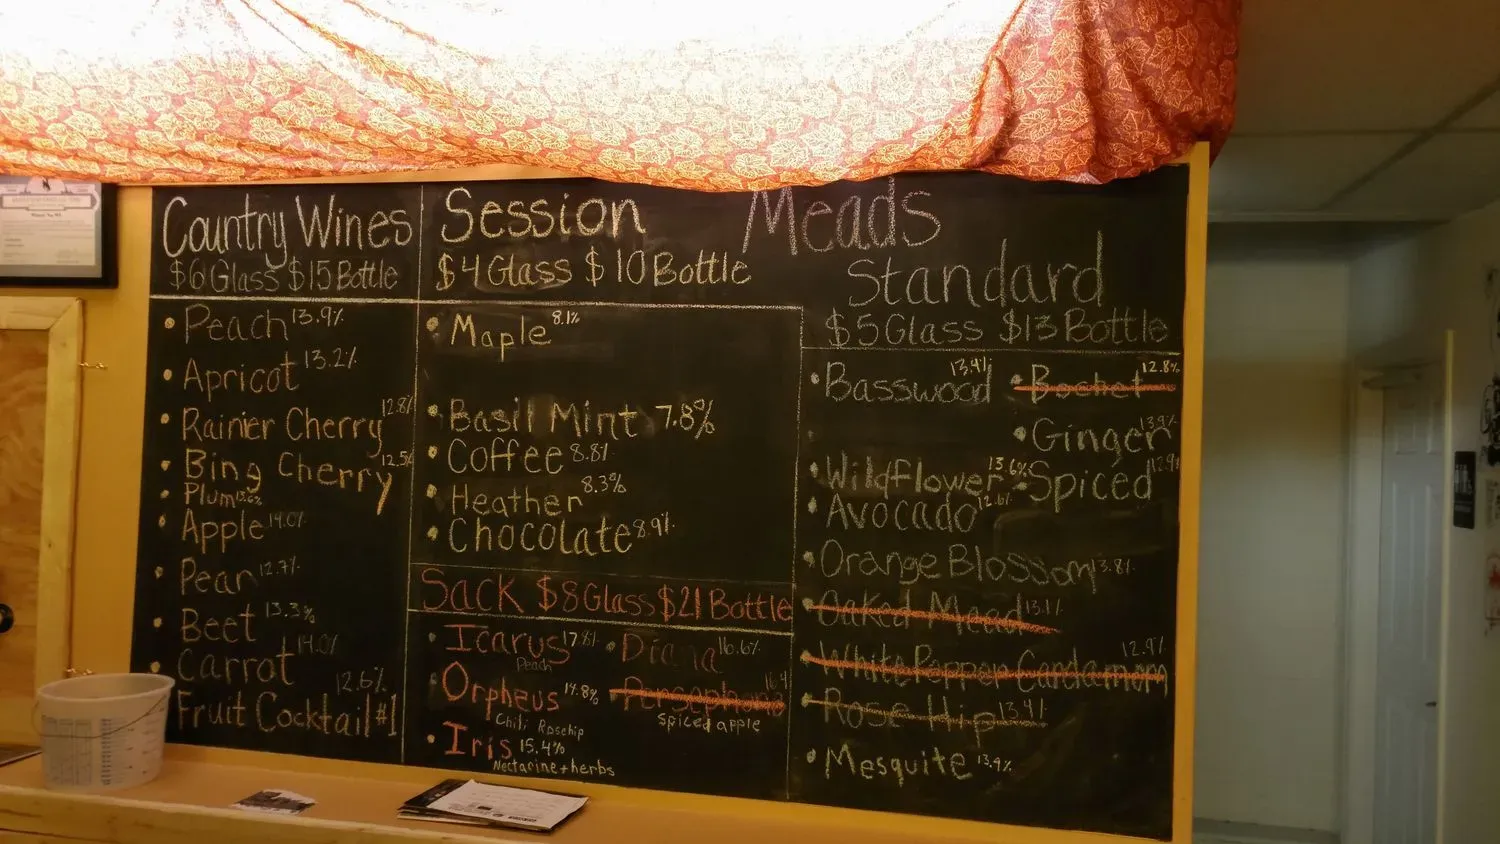 Country Wines
$6 Glass $15 Bottle
Peach 13.9%
Apricot 13.2%
Rainier Cherry 12.8%
Bing Cherry 12.5%
Plum 13.6%
Apple 14.0%
Pear 12.7%
Beet 13.3%
Carrot 14.0%
Fruit Cocktail #1 12.6%
Meads
Session
$4 Glass $10 Bottle
Maple 8.1%
Basil Mint 7.8%
Coffee 8.8%
Heather 8.3%
Chocolate 8.9%
Sack $8 Glass $21 Bottle
Icarus 17.8%
Peach
Orpheus 14.8%
Chili Rosehip
Iris 15.4%
Nectarine + herbs
Diana 16.6%
Persephone 16.4
spiced apple
Standard
$5 Glass $13 Bottle
Basswood 13.4%
Wildflower 13.6%
Avocado 12.6%
Orange Blossom 13.8%
Oaked Mead 13.1%
White Pepper Cardamom 12.9%
Rose Hip 13.4%
Mesquite 13.9%
Bochet 12.8%
Ginger 13.9%
Spiced 12.9%